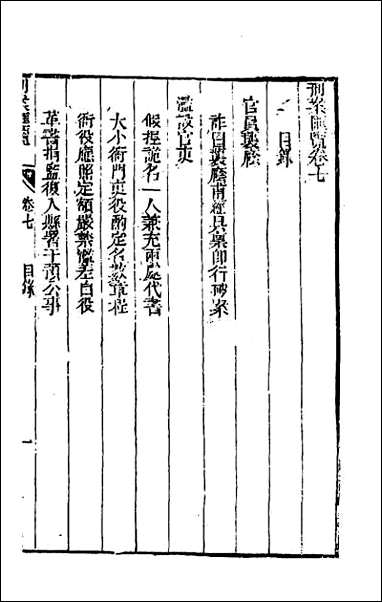 刑案匯覽卷七
目錄
官員襲廕
詐冒襲廕甫經具呈即行破案
濫設官吏
假捏詭名一人兼充兩處代書
大小衙門吏役酌定名數章程
衙役應照定額嚴禁濫差白役
革書捐監復入縣署干預公事
刑案匯覽
卷七 目錄
一